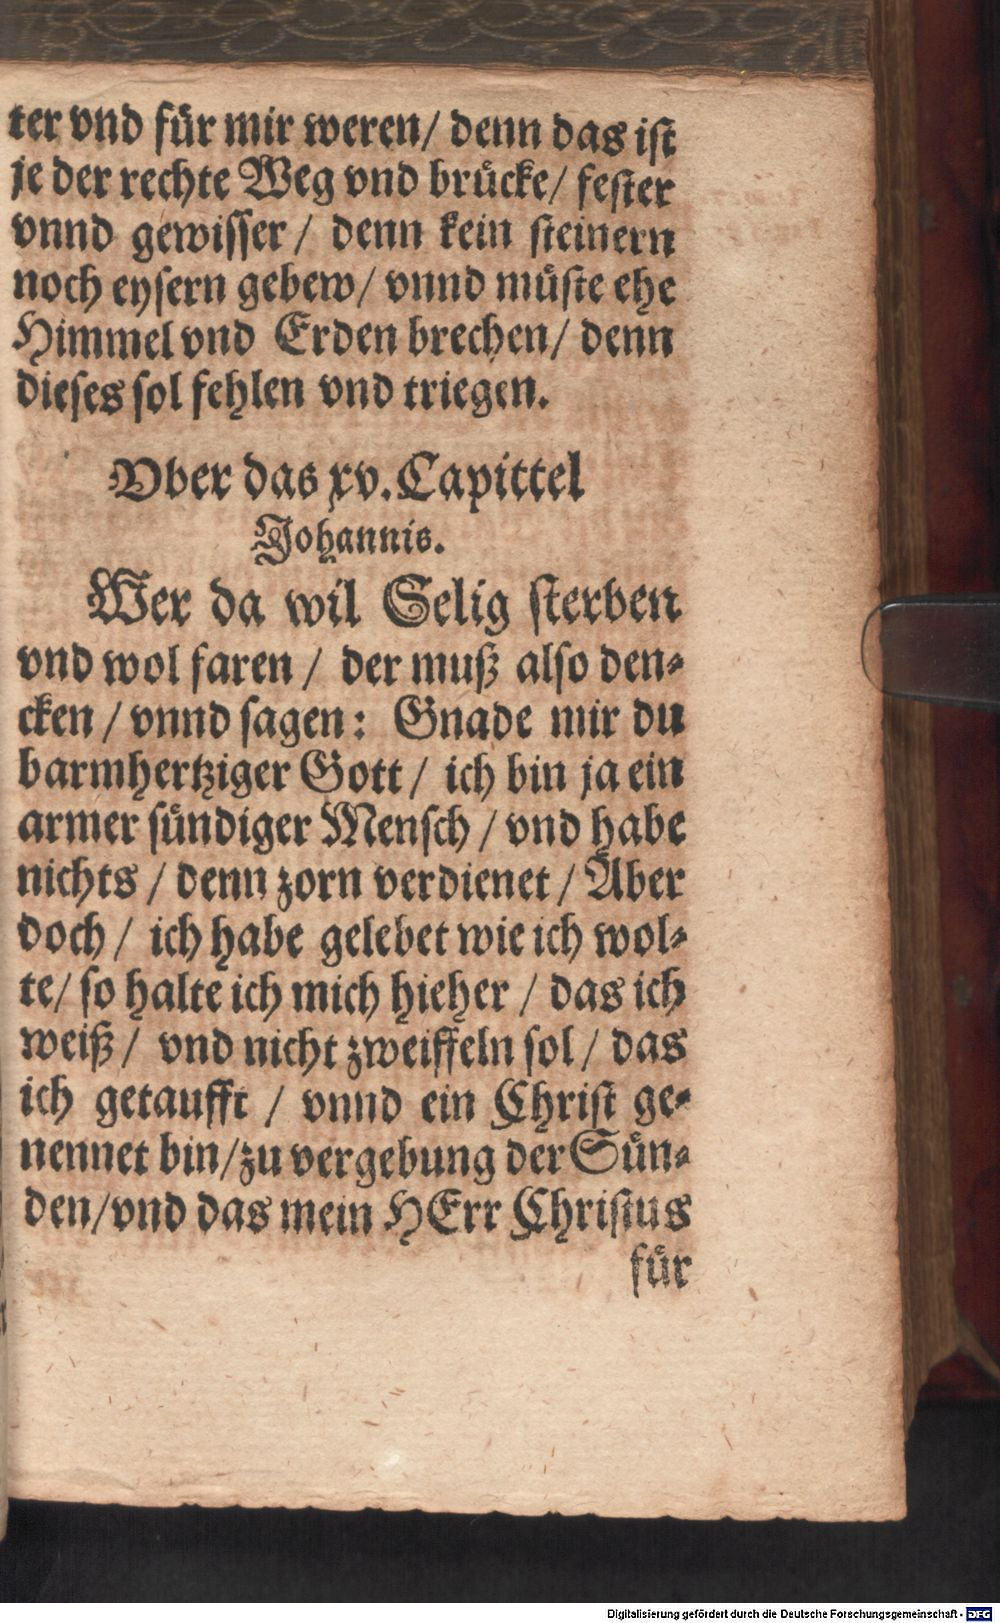 ter vnd für mir weren/ denn das ist
je der rechte Weg vnd brücke/ fester
vnnd gewisser / denn kein steinern
noch eysern gebew/ vnnd müste ehe
Himmel vnd Erden brechen/ denn
dieses sol fehlen vnd triegen.
Vber das xv. Capittel
Johannis.
Wer da wil Selig sterben
vnd wol faren / der muß also den-
cken / vnnd sagen: Gnade mir du
barmhertziger Gott / ich bin ja ein
armer sündiger Mensch / vnd habe
nichts / denn zorn verdienet / Aber
doch / ich habe gelebet wie ich wol-
te/ so halte ich mich hieher / das ich
weiß / vnd nicht zweiffeln sol / das
ich getaufft / vnnd ein Christ ge-
nennet bin/zu vergebung der Sün-
den/vnd das mein HErr Christus
für
Digitalisierung gefördert durch die Deutsche Forschungsgemeinschaft - DFG